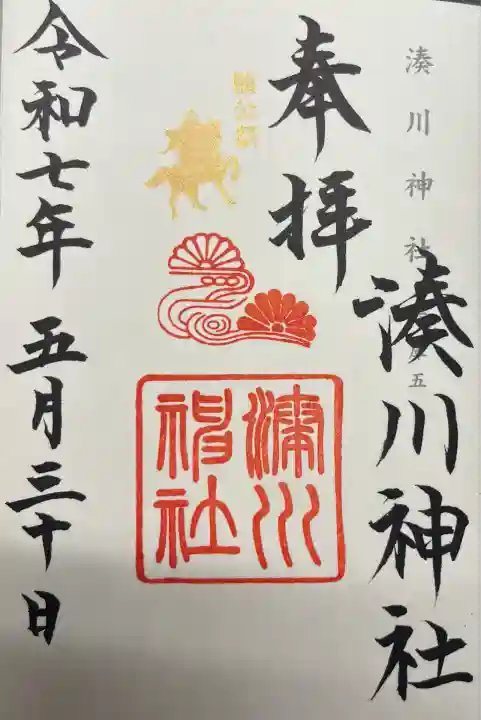 奉拝
湊川神社
湊川神社
楠公祭
湊川神社
令和七年 五月三十日